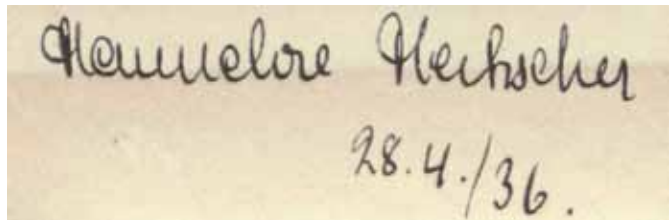 Hannelore Heckscher
28.4./36.